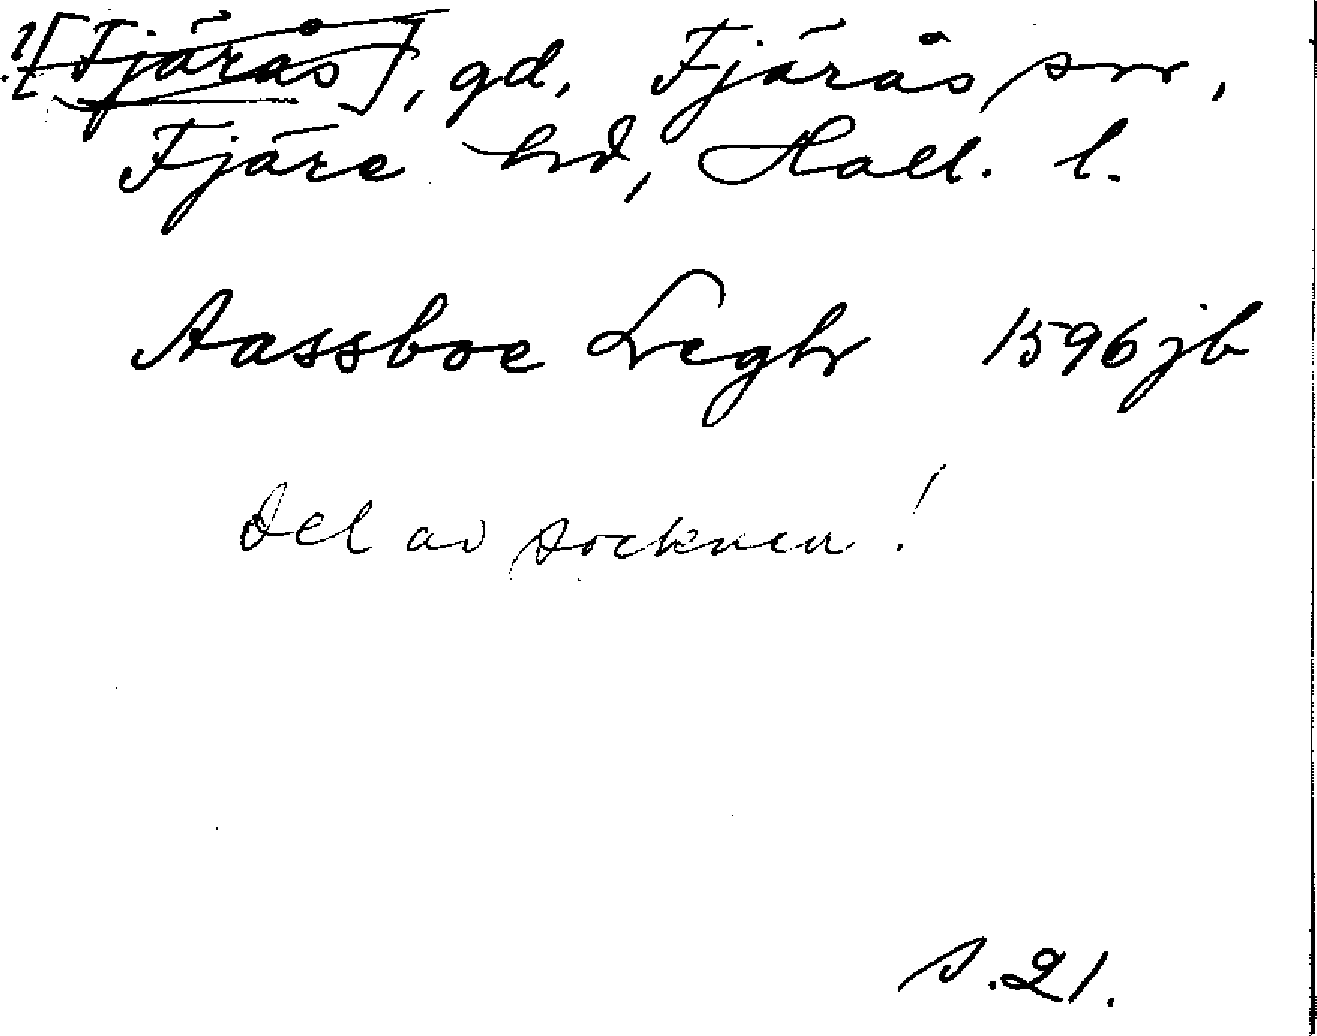 ?[Fjärås], gd, Fjärås sn,
Fjäre hd, Hall. l.
Aassboe Legh 1596 jb
Del av socknen!
s. 21.